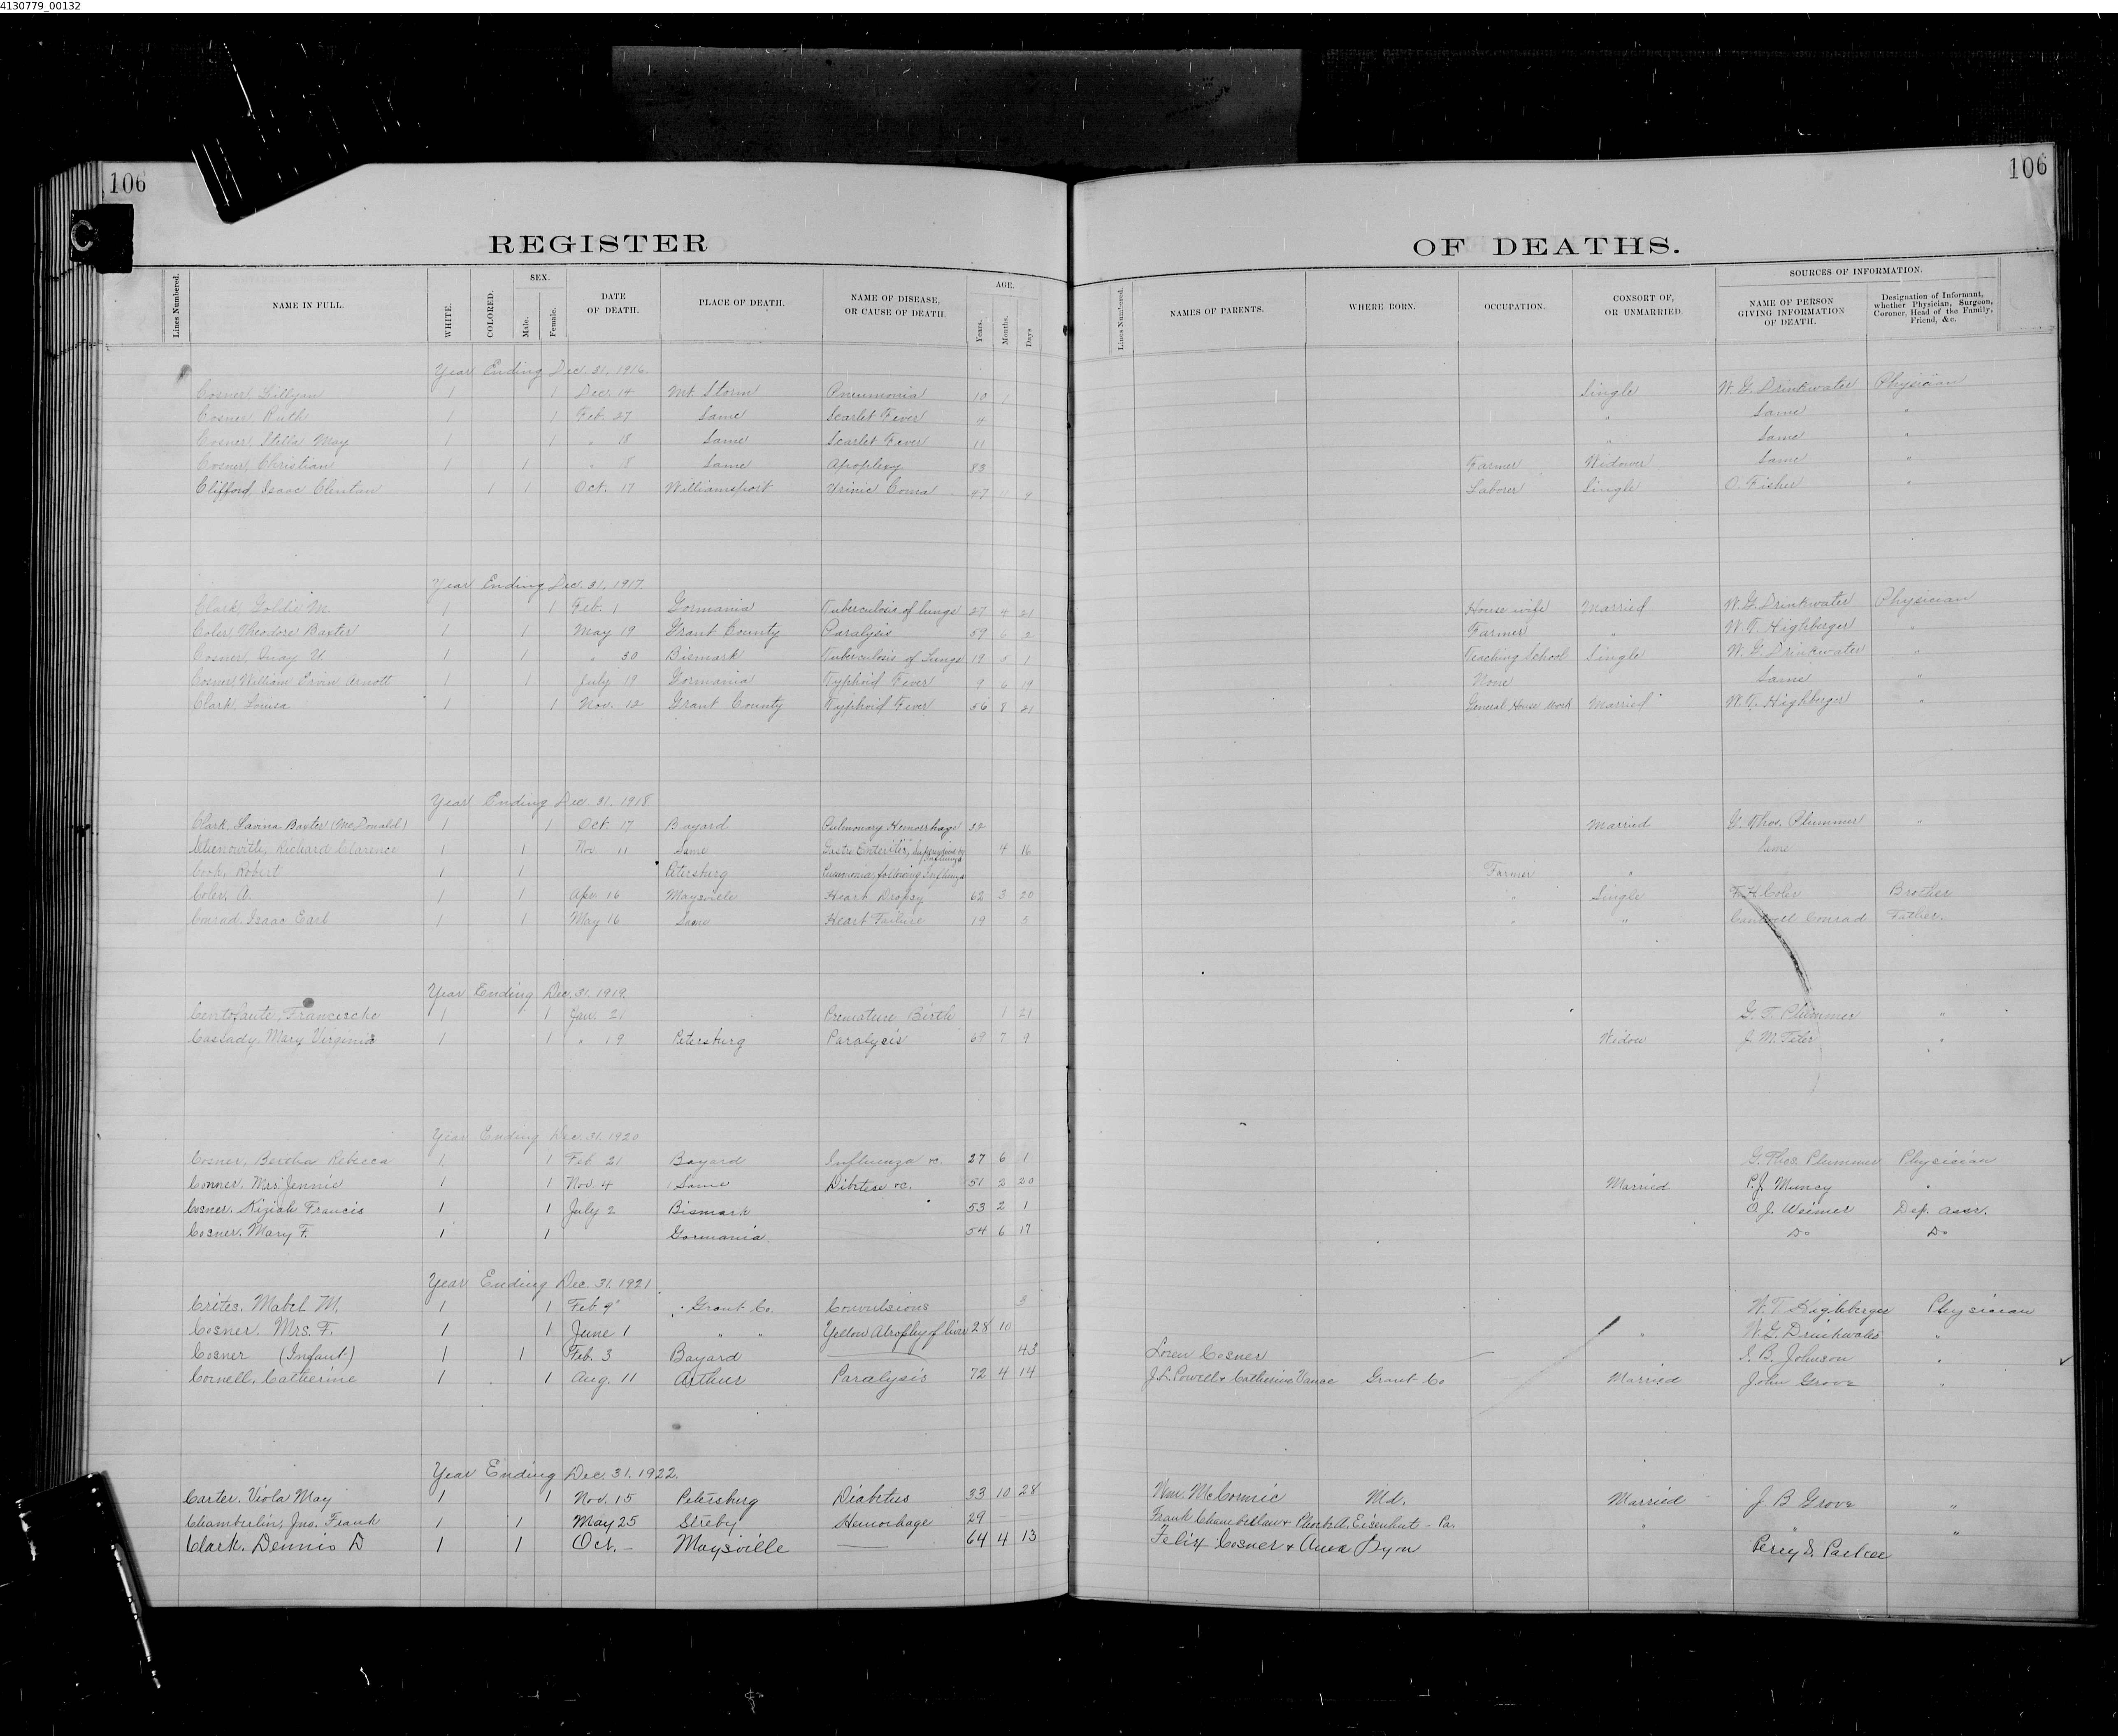 4130779_00132
106
106
C
REGISTER OF DEATHS.
Lines Numbered. NAME IN FULL. WHITE. COLORED. SEX. Male. Female. DATE OF DEATH. PLACE OF DEATH. NAME OF DISEASE, OR CAUSE OF DEATH. AGE. Years. Months. Days Lines Numbered. NAMES OF PARENTS. WHERE BORN. OCCUPATION. CONSORT OF, OR UNMARRIED. SOURCES OF INFORMATION. NAME OF PERSON GIVING INFORMATION OF DEATH. Designation of Informant, whether Physician, Surgeon, Coroner, Head of the Family, Friend, &c.
Year Ending Dec 31, 1916.
Cosner, Gillyan 1 1 Dec. 14 Mt. Storm Pneumonia 10 1 Single W. G. Drinkwater Physician
Cosner, Ruth 1 1 Feb. 27 Same Scarlet Fever 4 " Same "
Cosner, Stella May 1 1 " 18 Same Scarlet Fever 11 " Same "
Cosner, Christian 1 1 " 18 Same Apoplexy 83 Farmer Widower Same "
Clifford, Isaac Clinton 1 1 Oct. 17 Williamsport Urinic Coma 27 11 9 Laborer Single O. Fisher "
Year Ending Dec. 31, 1917.
Clark, Goldie M. 1 1 Feb. 1 Gormania Tuberculosis of lungs 27 4 21 House wife Married W. G. Drinkwater Physician
Coler, Theodore Baxter 1 1 May 19 Grant County Paralysis 59 6 2 Farmer " W. T. Highberger "
Cosner, Quay U. 1 1 " 30 Bismark Tuberculosis of Lungs 19 5 1 Teaching School Single W. G. Drinkwater "
Cosner, William Ervin Arnott 1 1 July 19 Gormania Typhoid Fever 9 6 19 None Same "
Clark, Louisa 1 1 Nov. 12 Grant County Typhoid Fever 56 8 21 General House Work Married W. T. Highberger "
Year Ending Dec. 31. 1918.
Clark, Lavina Baxter (McDonald) 1 1 Oct. 17 Bayard Pulmonary Hemorrhage 32 Married G. Thos. Plummer "
Chenowith, Richard Clarence 1 1 Nov. 11 Same Gastro Enteritis, 4 16 Same
Cook, Robert 1 1 Petersburg Pneumonia following Influenza Farmer "
Coler, A. 1 1 Apr. 16 Maysville Heart Dropsy 62 3 20 " Single F. H. Coler Brother
Conrad, Isaac Earl 1 1 May 16 Same Heart Failure 19 5 " " Conrad Father.
Year Ending Dec. 31. 1919.
Centofante, Francesche 1 1 Jan. 21 Premature Birth 1 21 G. T. Plummer "
Cassady, Mary Virginia 1 1 " 19 Petersburg Paralysis 69 7 9 Widow J. M. Teter "
Year Ending Dec. 31. 1920
Cosner, Bertha Rebecca 1 1 Feb. 21 Bayard Influenza &c. 27 6 1 G. Thos. Plummer Physician
Conner, Mrs. Jennie 1 1 Nov. 4 Same Dibitese &c. 51 2 20 Married P. J. Muncy "
Cosner, Kiziah Francis 1 1 July 2 Bismark 53 2 1 O. J. Weimer Dep. Assr.
Cosner, Mary F. 1 1 Gormania 54 6 17 Do Do
Year Ending Dec. 31. 1921
Crites, Mabel M. 1 1 Feb 9 Grant Co. Convulsions 3 W. T. Highberger Physician
Cosner, Mrs. F. 1 1 June 1 " " Yellow Atrophy of liver 28 10 " W. G. Drinkwater "
Cosner (Infant) 1 1 Feb. 3 Bayard 43 Loren Cosner S. B. Johnson "
Cornell, Catherine 1 1 Aug. 11 Arthur Paralysis 72 4 14 J. L. Powell & Catherine Vance Grant Co Married John Grove "
Year Ending Dec. 31. 1922.
Carter, Viola May 1 1 Nov. 15 Petersburg Diabetus 33 10 28 Wm. McCormic Md. Married J. B Grove "
Chamberlin, Jno. Frank 1 1 May 25 Streby Hemorhage 29 Frank Chamberlaw & A. Eisenhut - Pa. " "
Clark, Dennis D 1 1 Oct. - Maysville 64 4 13 Felix Cosner & Anna Lyon Perry S. "